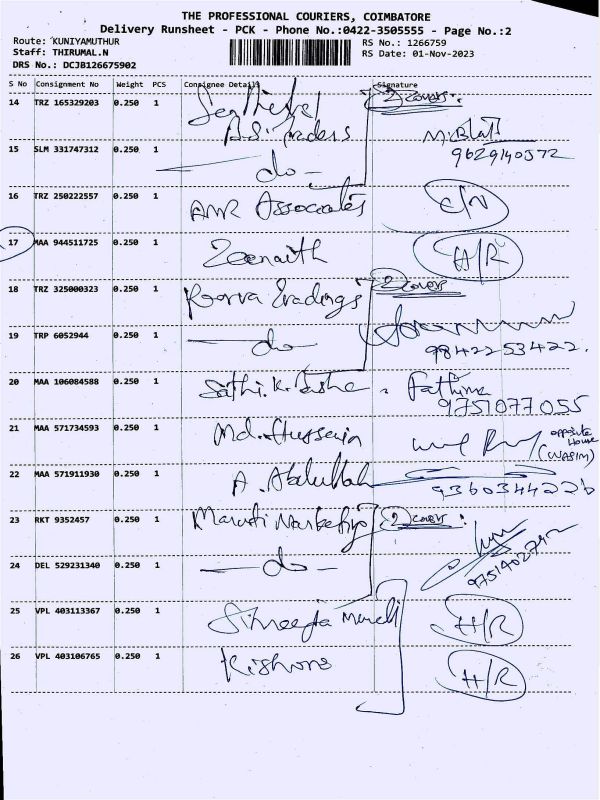 THE PROFESSIONAL COURIERS, COIMBATORE
Delivery Runsheet - PCK - Phone No.:0422-3505555 - Page No.:2
Route: KUNIYAMUTHUR
RS No.: 1266759
Staff: THIRUMAL.N
RS Date: 01-Nov-2023
DRS No.: DCJB126675902
S No Consignment No Weight PCS Consignee Details Signature
14 TRZ 165329203 0.250 1 A.S. Traders 2 covers:
15 SLM 331747312 0.250 1 — do — 9629140572
16 TRZ 250222557 0.250 1 AMR Associates C/N
17 MAA 944511725 0.250 1 Zeenaith H/R
18 TRZ 325000323 0.250 1 Tradings 2 covers
19 TRP 6052944 0.250 1 — do — 9842253422.
20 MAA 106084588 0.250 1 Sathi.K. Fathima 9751077055
21 MAA 571734593 0.250 1 Md. Hussain opposite House (WASIM)
22 MAA 571911930 0.250 1 A. Abdullah 9360344226
23 RKT 9352457 0.250 1 Maruti Marketing 2 covers:
24 DEL 529231340 0.250 1 — do —
25 VPL 403113367 0.250 1 H/R
26 VPL 403106765 0.250 1 Kishore H/R